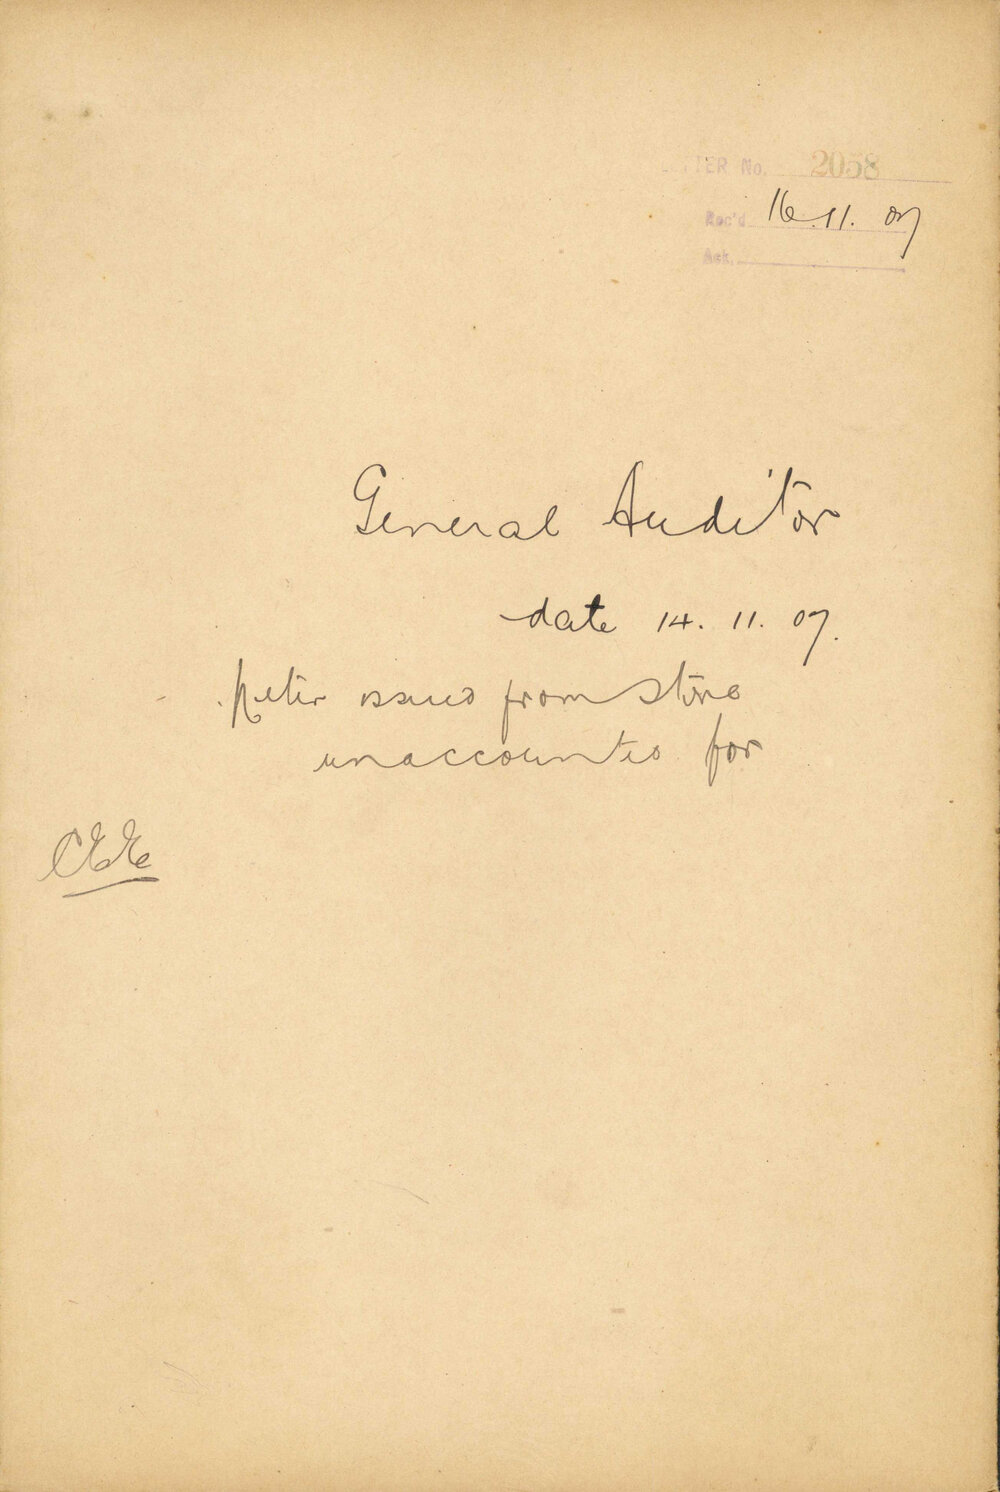 LETTER No. 2058
Rec'd 16.11.07
Ack.
General Auditor
date 14.11.07.
Meter issued from store
unaccounted for